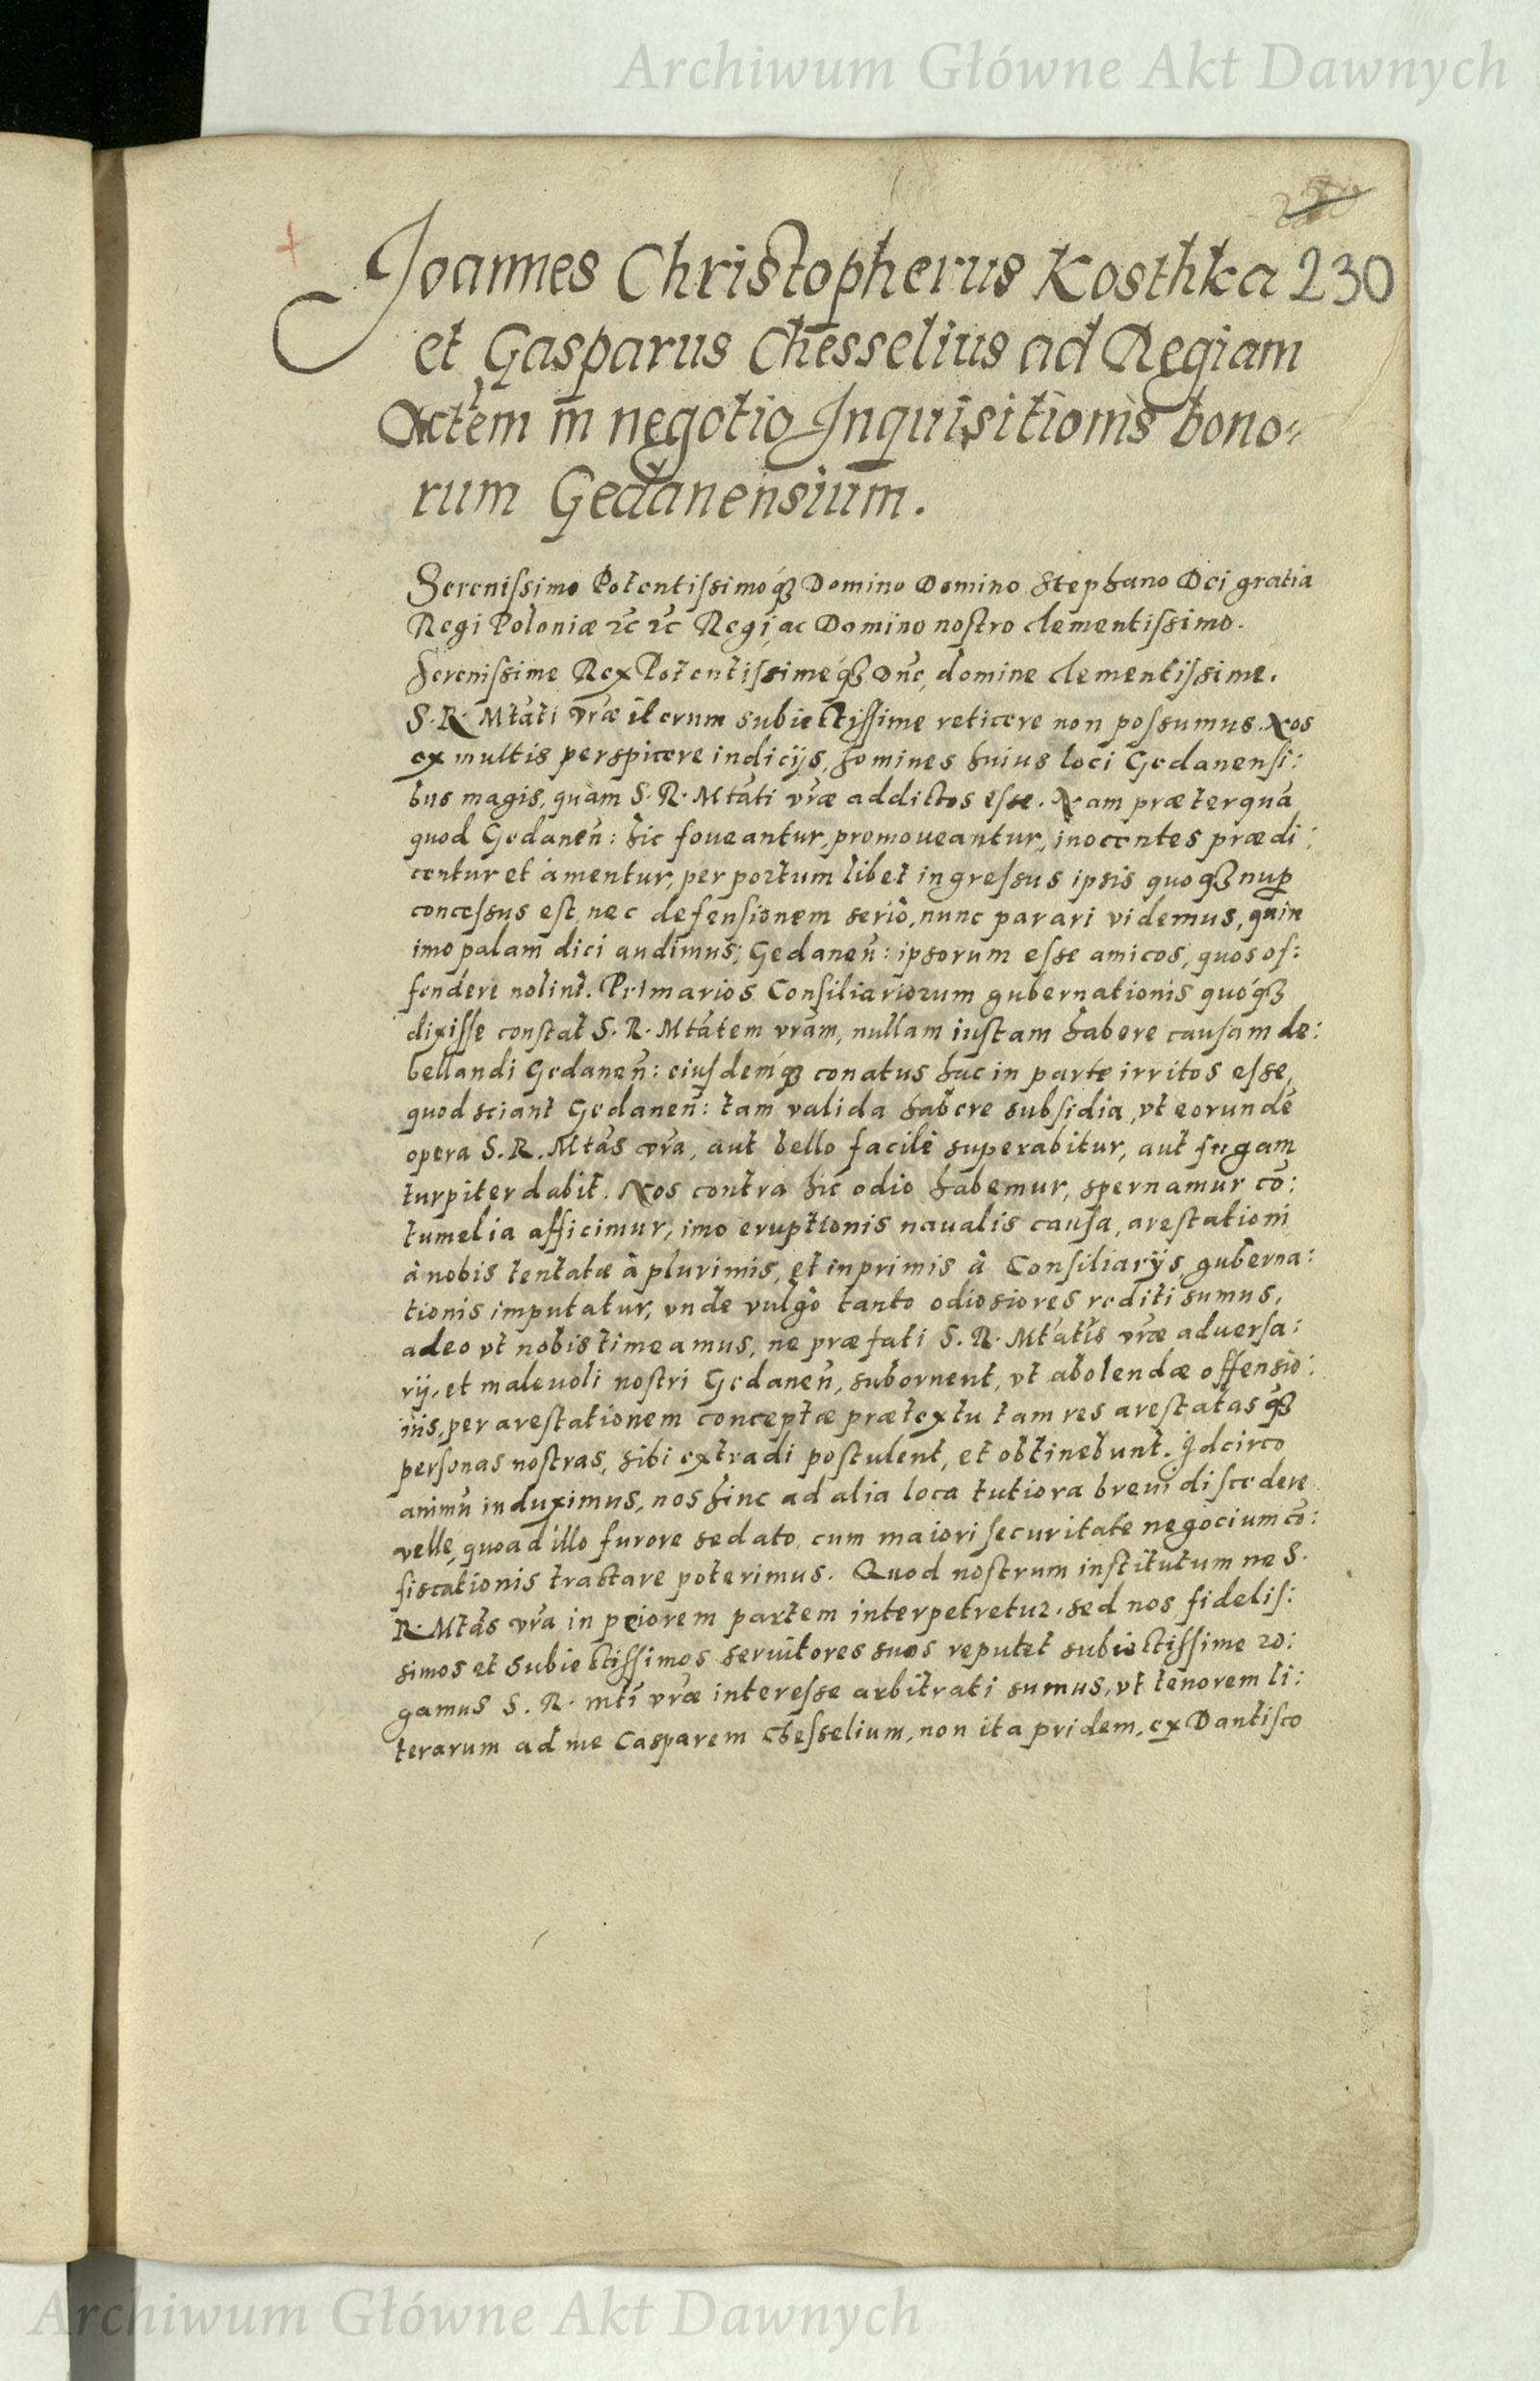 Archiwum Główne Akt Dawnych
Joannes Christopherus Kosthka 230
et Gasparus Chesselius ad Regiam
Mtem in negotio Inquisitionis bono=
rum Gedanensium.
Serenissimo Potentissimoq3 Domino Domino Stephano Dei gratia
Regi Poloniæ &c &c Regi, ac Domino nostro clementissimo.
Serenissime Rex Potentissimeq3 Dnē, domine clementissime.
S. R. Mtati vræ iterum subiectissime reticere non possumus. Nos
ex multis perspicere indicijs, homines huius loci Gedanensi:
bus magis, quam S. R. Mtati vræ addictos esse. Nam præterquā
quod Gedanen̄: hic foueantur, promoueantur, inocentes prædi:
centur et amentur, per portum libet ingressus ipsis quoq3 nup
concessus est, nec defensionem serió, nunc parari videmus, quin
imo palam dici audimus; Gedanen̄: ipsorum esse amicos, quos of:
fendere nolint. Primarios Consiliariorum gubernationis quóq3
dixisse constat S. R. Mtatem vram, nullam iustam habere causam de:
bellandi Gedanen̄: eiusdemq3 conatus hac in parte irritos esse,
quod sciant Gedanen̄: tam valida habere subsidia, vt eorundē
opera S. R. Mtas vra, aut bello facilè superabitur, aut fugam
turpiter dabit. Nos contra hic odio habemur, spernamur cō:
tumelia afficimur, imo eruptionis naualis causa, arestationi
à nobis tentatæ à plurimis, et inprimis à Consiliarijs guberna:
tionis imputatur, vnde vulgò tanto odiosiores rediti sumus,
adeo vt nobis timeamus, ne præfati S. R. Mtatis vræ aduersa:
rij, et maleuoli nostri Gedanen̄, subornent, vt abolendæ offensio:
nis, per arestationem conceptæ prætextu tam res arestatas q3
personas nostras, sibi extradi postulent, et obtinebunt. Idcirco
animū induximus, nos hinc ad alia loca tutiora breui discedere
velle, quoad illo furore sedato, cum maiori securitate negocium cō:
fiscationis tractare poterimus. Quod nostrum institutum ne S.
R. Mtas vra in peiorem partem interpetretur, sed nos fidelis:
simos et subiectissimos seruitores suos reputet subiectissime ro:
gamus S. R. Mti vræ interesse arbitrati sumus, vt tenorem li:
terarum ad me Casparem Chesselium, non ita pridem, ex Dantisco
Archiwum Główne Akt Dawnych